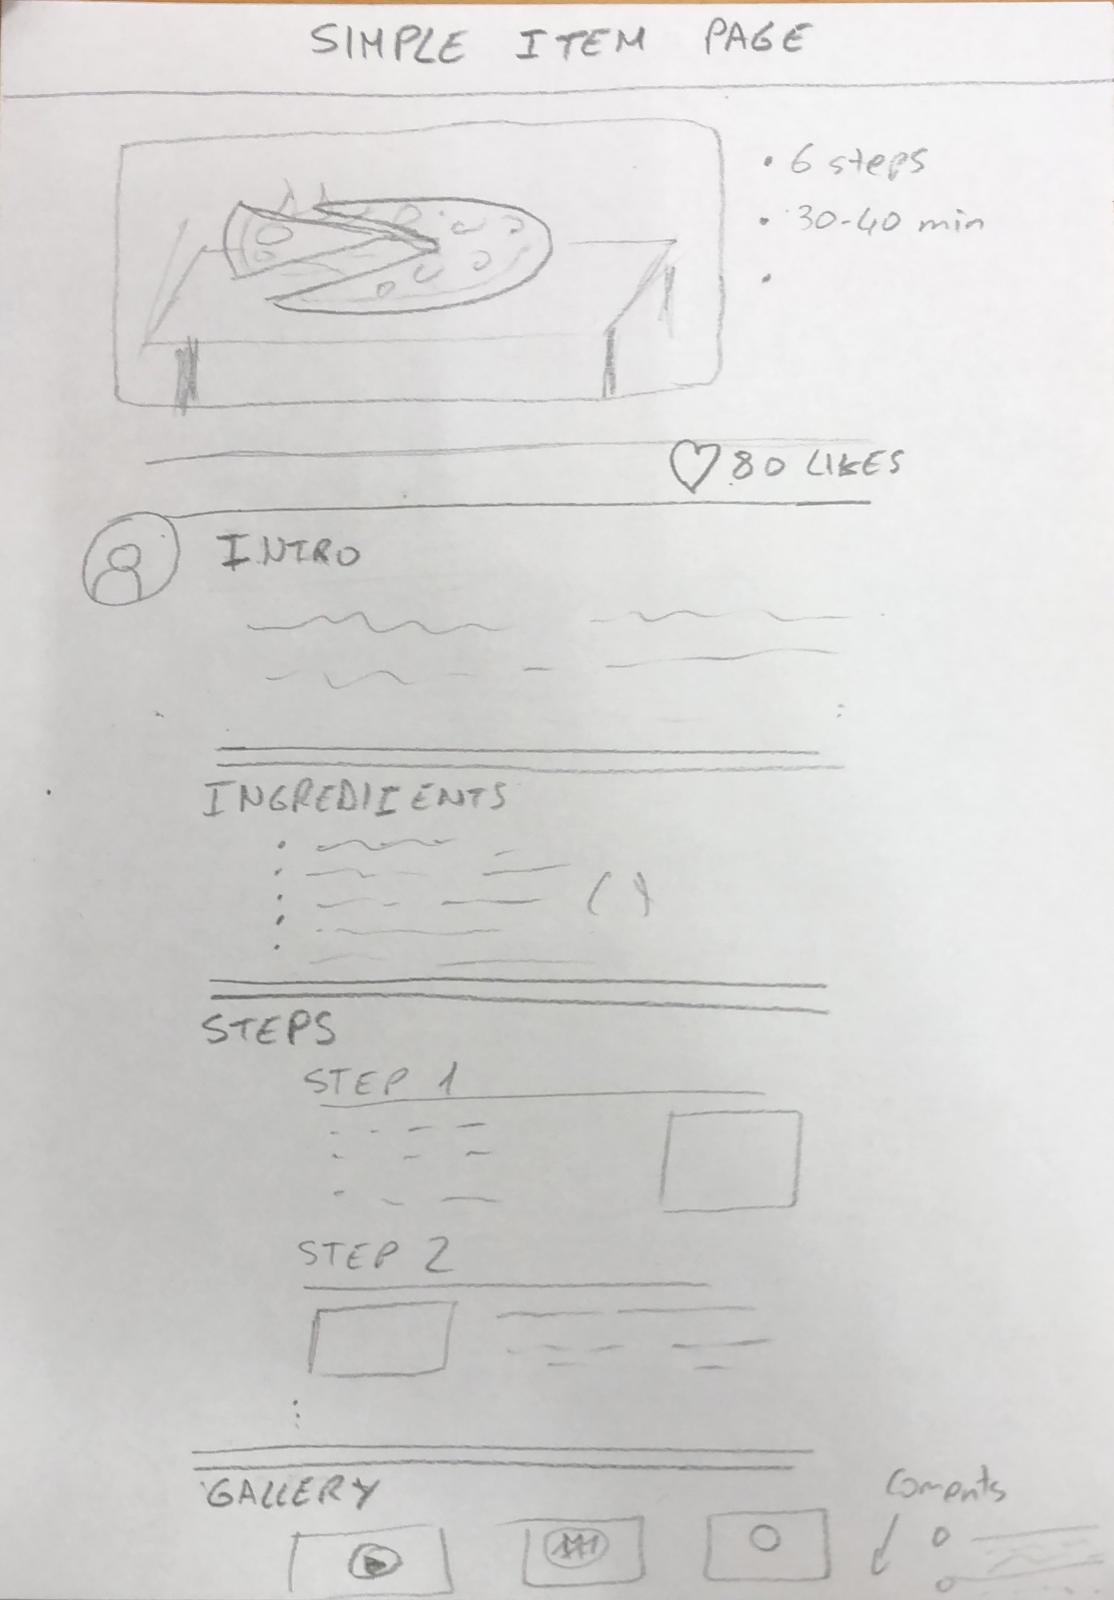 SIMPLE ITEM PAGE
• 6 steps
• 30-40 min
•
80 LIKES
INTRO
INGREDIIENTS
( )
STEPS
STEP 1
STEP 2
GALLERY
Coments